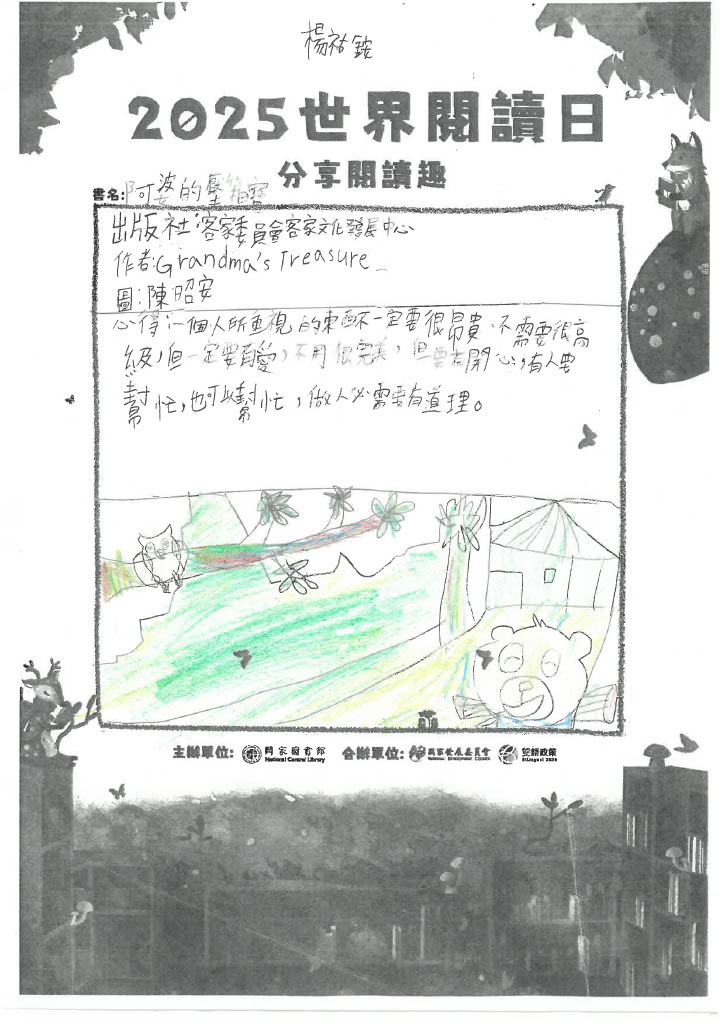 楊祐銨
2025世界閱讀日
分享閱讀趣
書名:阿婆的
出版社:客家委員會客家文化發展中心
作者:Grandma's Treasure
圖:陳昭安
心得:一個人所重視的東西不一定要很昂貴、不需要很高
級,但一定要有愛,不用很完美,但要去開心,有人要
幫忙,也可以幫忙,做人必需要有道理。
主辦單位: 國家圖書館 National Central Library 合辦單位: 國家發展委員會 NATIONAL DEVELOPMENT COUNCIL 雙語政策 Bilingual 2030